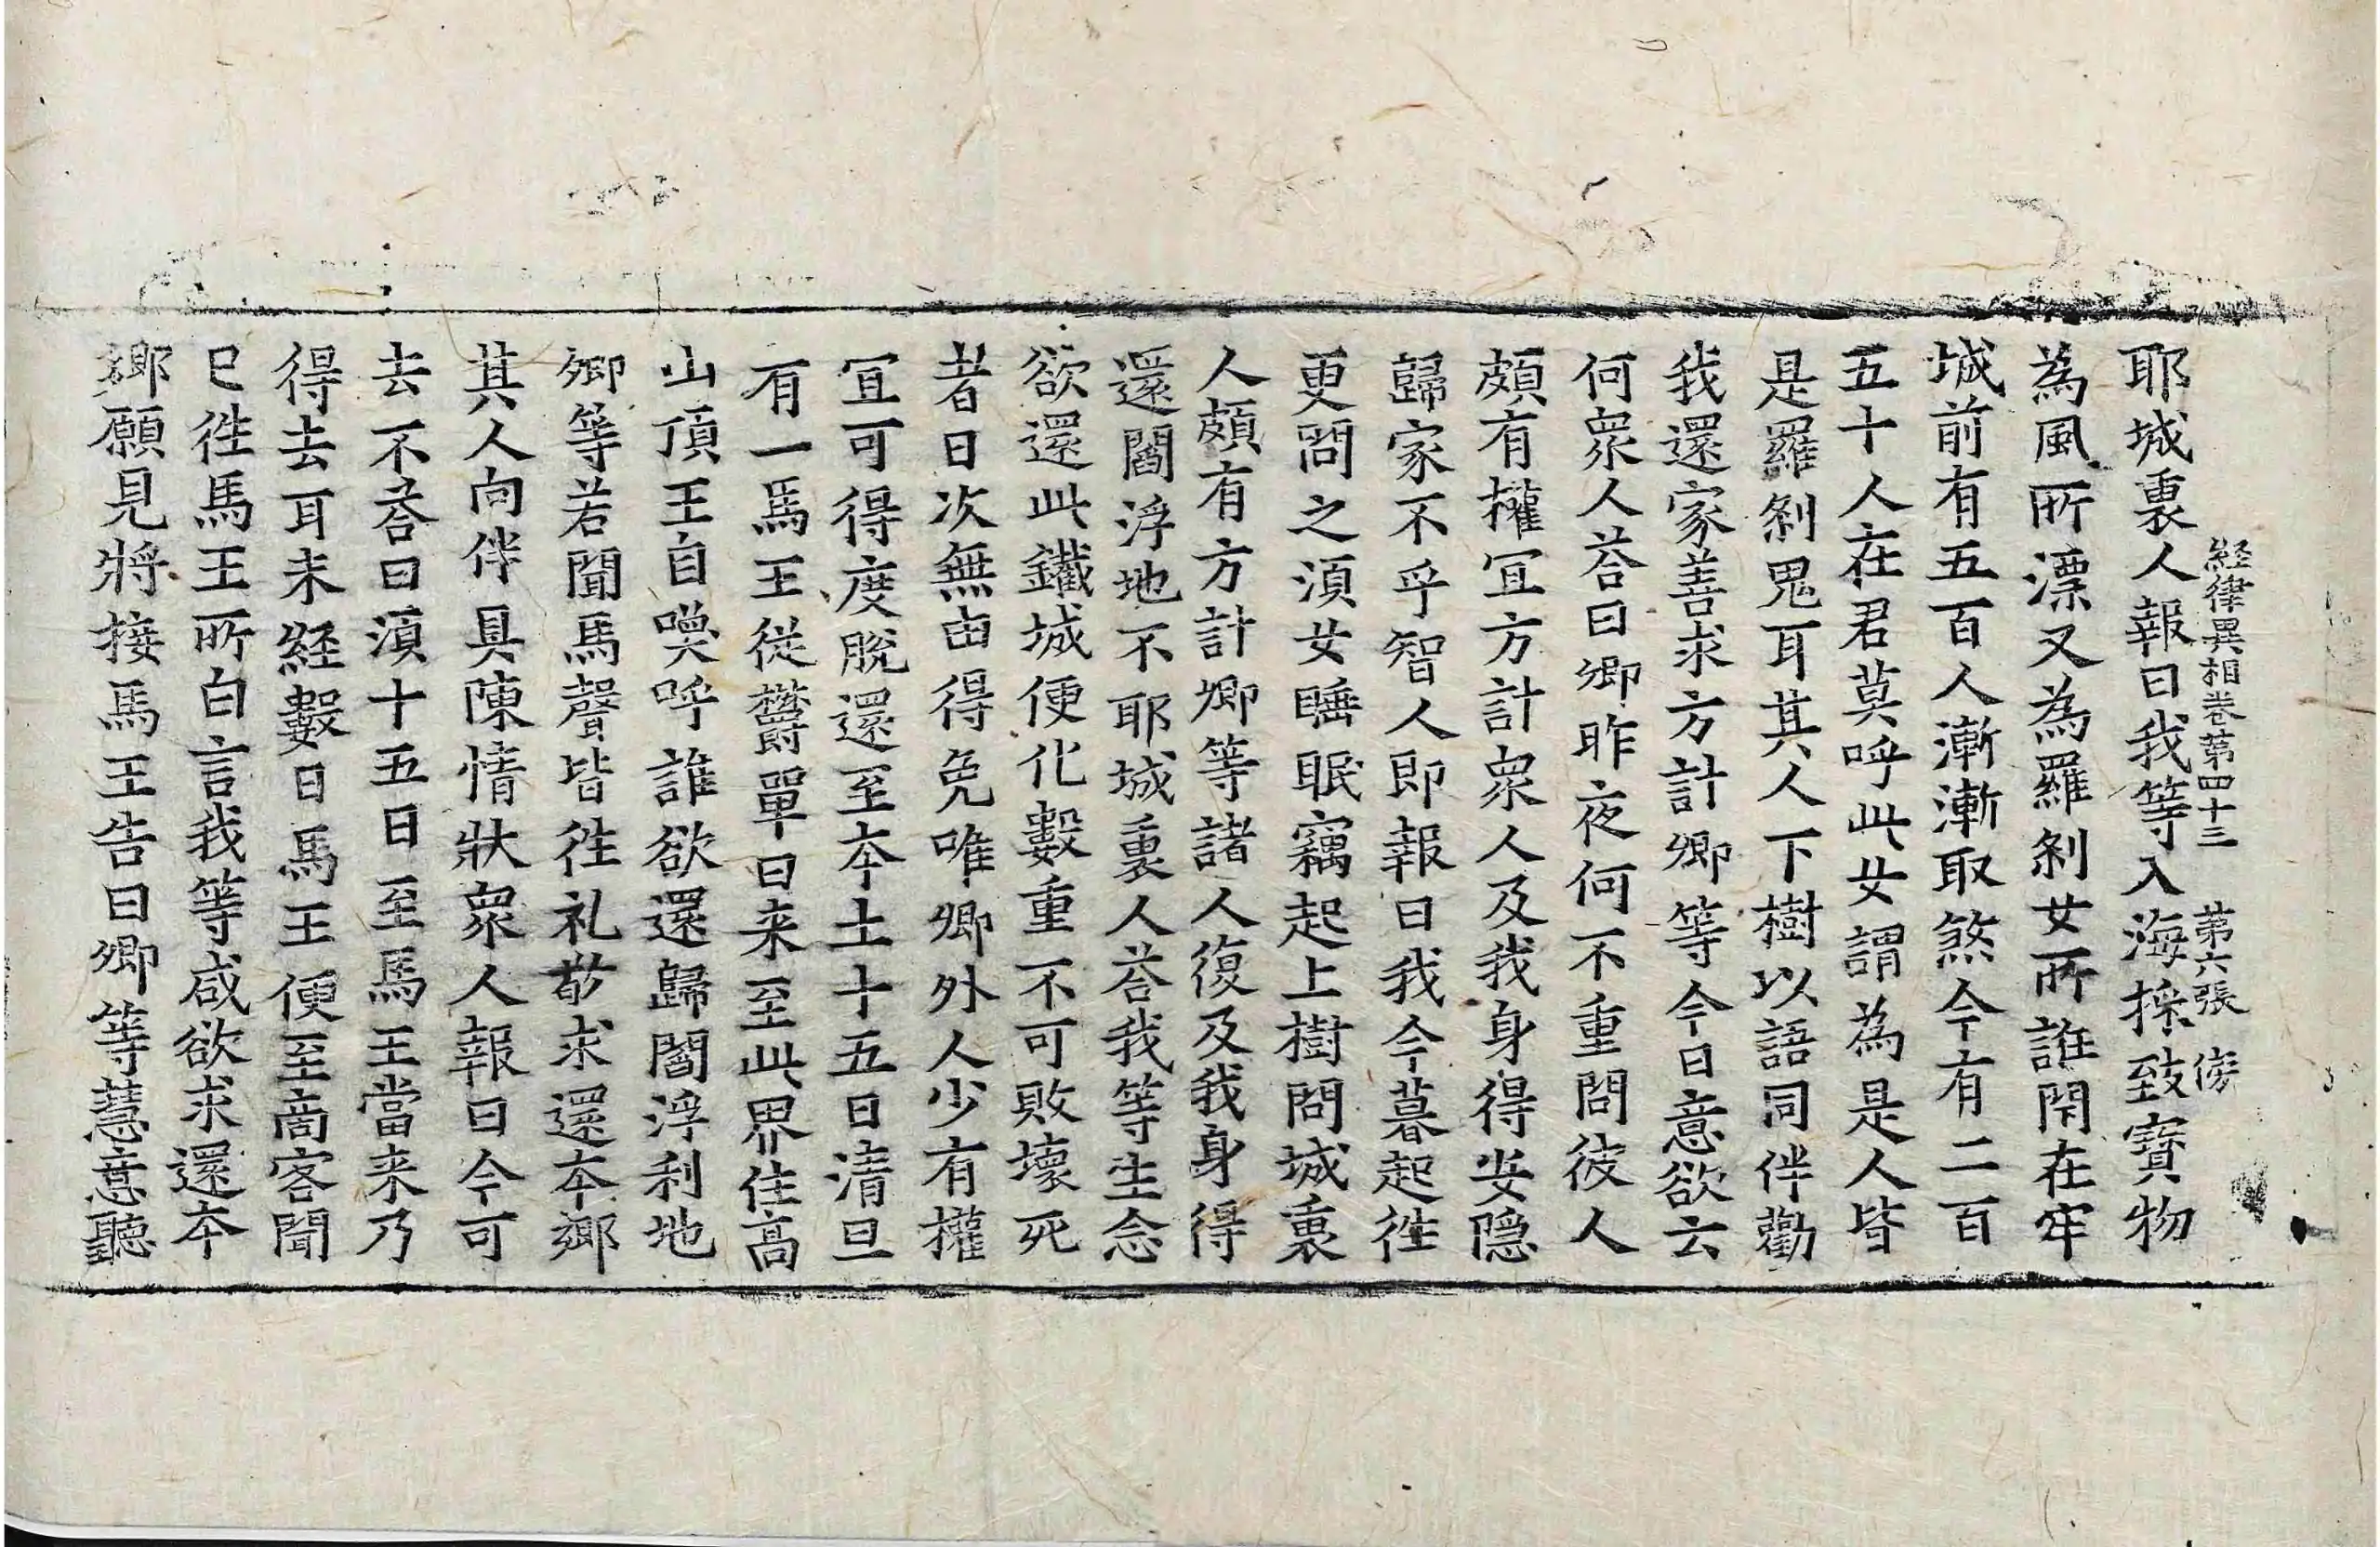 経律異相卷第四十三 第六張 傍
耶城裏人報曰我等入海採致寳物
為風所漂又為羅剎女所誑閇在牢
城前有五百人漸漸取煞今有二百
五十人在君莫呼此女謂為是人皆
是羅剎鬼耳其人下樹以語同伴勸
我還家善求方計卿等今日意欲云
何衆人荅曰卿昨夜何不重問彼人
頗有權冝方計衆人及我身得安隠
歸家不乎智人即報曰我今暮起徃
更問之湏女睡眠竊起上樹問城裏
人頗有方計卿等諸人復及我身得
還閻浮地不耶城裏人荅我等生念
欲還此鐵城便化數重不可敗壞死
者日次無由得免唯卿外人少有權
冝可得度脫還至夲土十五日清旦
有一馬王従欝單曰来至此界住高
山頂王自喚呼誰欲還歸閻浮利地
卿等若聞馬聲皆徃礼敬求還夲鄉
其人向伴具陳情狀衆人報曰今可
去不荅曰湏十五日至馬王當来乃
得去耳未經數日馬王便至啇客聞
已徃馬王所白言我等咸欲求還夲
鄉願見將接馬王告曰卿等慧意聽